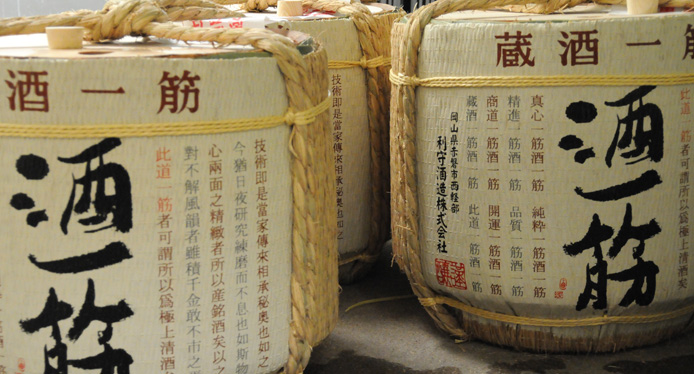 酒一筋
酒一筋
技術即是當家傳來相承秘奥也如之
今猶日夜研究練磨而不息也如斯物
心兩面之精緻者所以産銘酒矣以之
對不解風韻者雖積千金敢不市之
此道一筋者可謂所以爲極上清酒矣
技術即是當家傳來相承秘奥也如之
蔵酒一筋
酒一筋
真心一筋酒一筋 純粋一筋酒一筋
精進一筋酒一筋 品質一筋酒一筋
商道一筋酒一筋 開運一筋酒一筋
蔵酒一筋酒一筋 此道一筋酒一筋
岡山県赤磐市西軽部
利守酒造株式会社